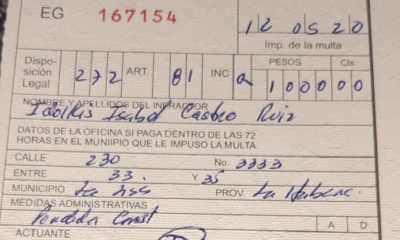 EG 167154
12 05 20
Imp. de la multa
Dispo-
sición
Legal 272 ART. 81 INC a PESOS Cts.
100000
NOMBRE Y APELLIDOS DEL INFRACTOR
Idolkis Isabel Castro Ruiz
DATOS DE LA OFICINA SI PAGA DENTRO DE LAS 72
HORAS EN EL MUNIIPIO QUE LE IMPUSO LA MULTA.
CALLE 230 No. 3333
ENTRE 33. Y 35
MUNICIPIO La Lisa PROV. La Habana
MEDIDAS ADMINISTRATIVAS
A D
ACTUANTE